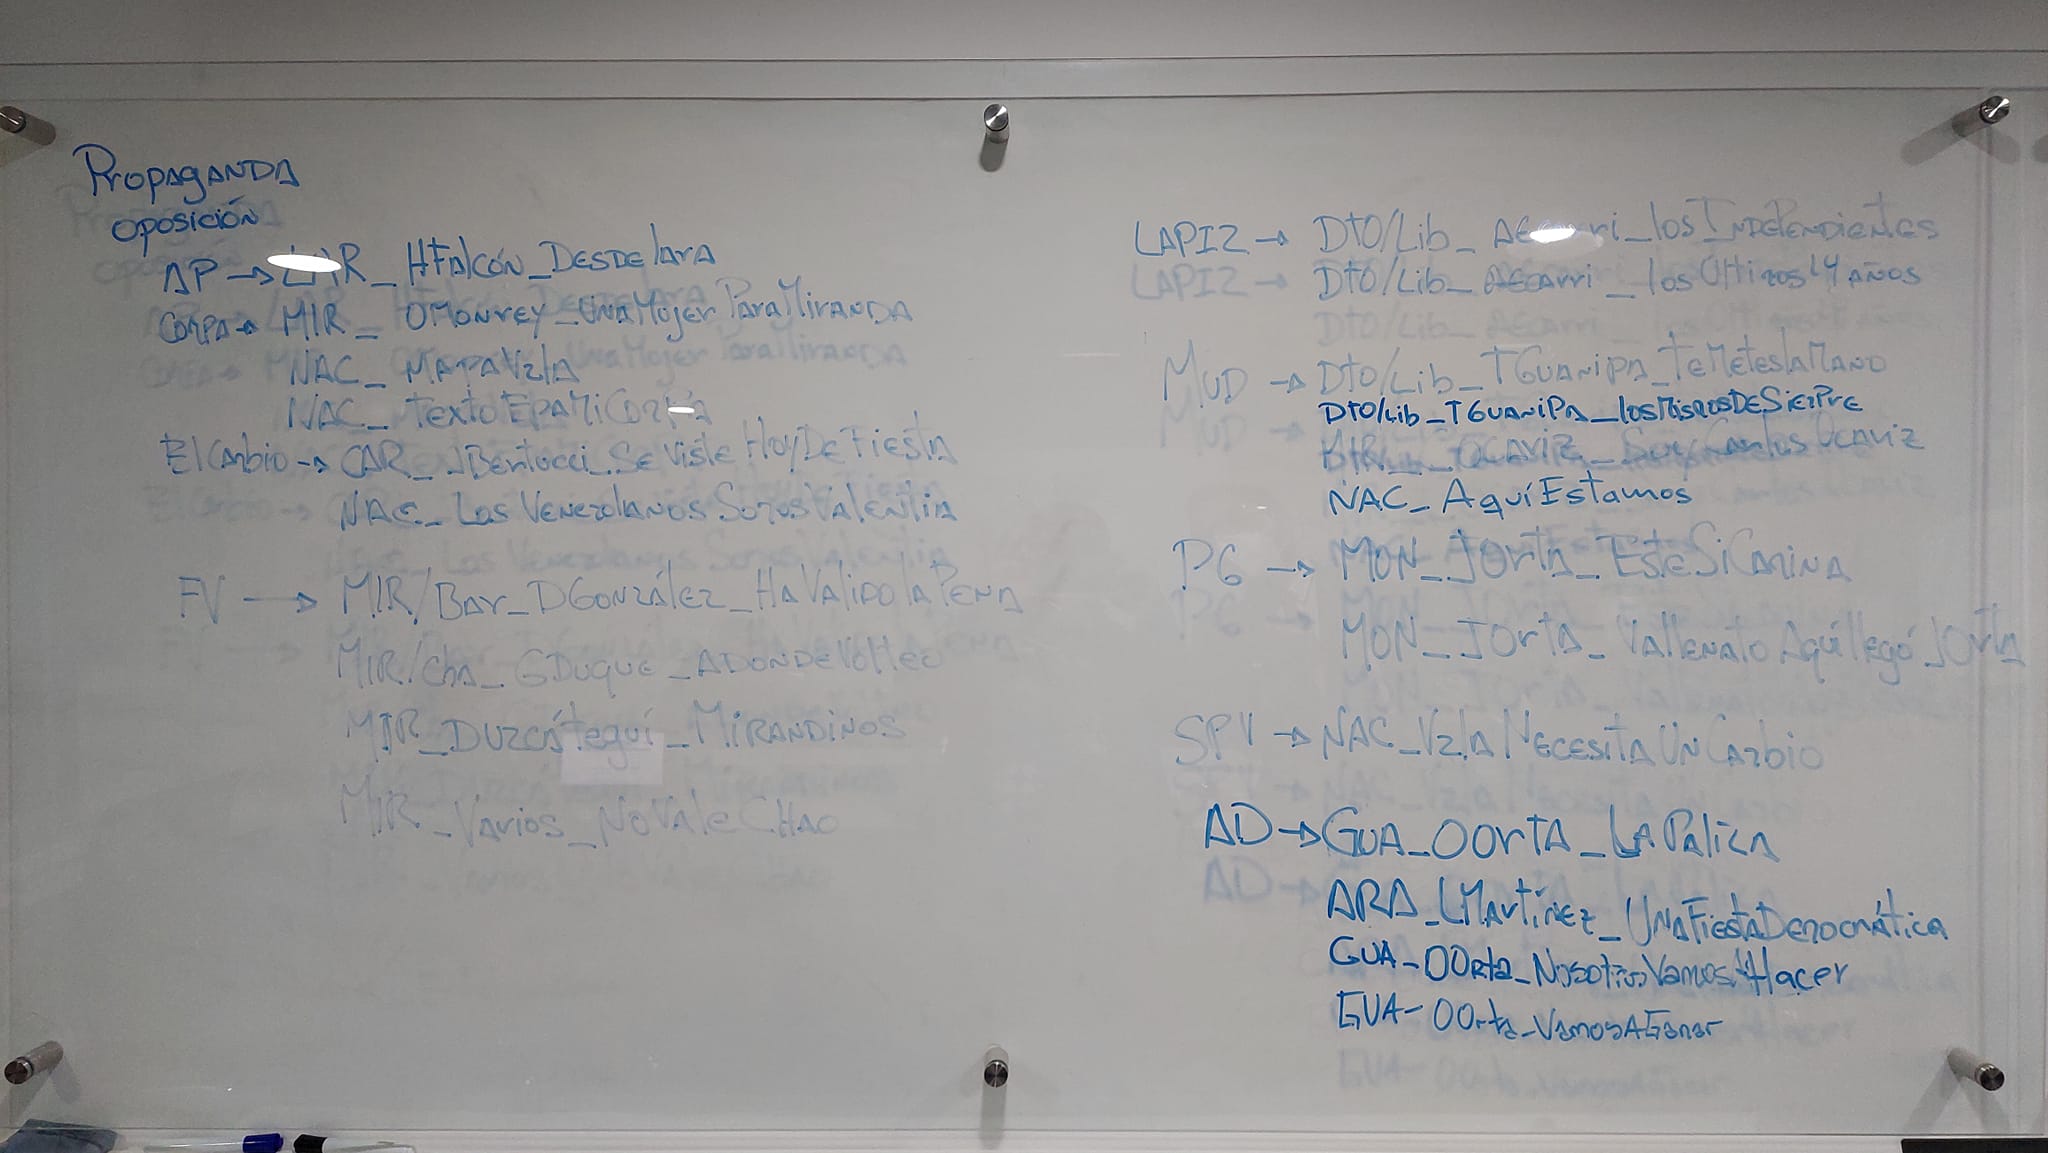 Propaganda
oposición
AP → LAR_HFalcón_DesdeLara
COMPA → MIR_OMonrey_UnaMujerParaMiranda
NAC_MapaVzla
NAC_TextoEpaMiCompa
El Cambio → CAR_JBertucci_SeVisteHoyDeFiesta
NAC_Los VenezolanosSomosValentía
FV → MIR/Bar_DGonzález_HaValidolaPena
MIR/Cha_GDuque_AdondeVolteo
MIR_DUzcátegui_Mirandinos
MIR_Varios_NoValeChao
LAPIZ → Dtto/Lib_AEcarri_losIndependientes
Dtto/Lib_AEcarri_losÚltimos14años
MUD → Dtto/Lib_TGuanipa_TeMeteslaMano
Dtto/Lib_TGuanipa_losMismosDeSiempre
MIR_COcariz_SoyCarlosOcariz
NAC_AquíEstamos
PG → MON_JOrta_EsteSiCamina
MON_JOrta_VallenatoAquíllegóJOrta
SPV → NAC_VzlaNecesitaUnCambio
AD → GUA_OOrta_LaPaliza
ARA_LMartínez_UnaFiestaDemocrática
GUA_OOrta_NosotrosVamosAHacer
GUA-OOrta_VamosAGanar